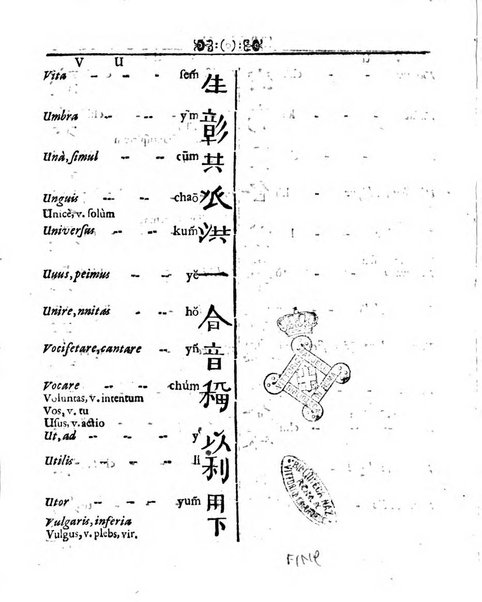 V U
Vita -- -- -- sem̄ 生
Umbra -- -- ym̄ 彰
Unà, ſimul -- -- cūm 共
Unguis -- -- chaō 爪
Unicè, v. ſolùm
Univerſus -- -- kum̄ 洪
Uuus, peimus -- -- yĕ 一
Unire, nnitas -- hŏ 合
Vociſetare, cantare -- yn̄ 音
Vocare -- -- chúm 稱
Voluntas, v. intentum
Vos, v. tu
Uſus, v. actio
Ut, ad -- -- y 以
Utilis -- -- li 利
Utor -- -- yum̄ 用
Vulgaris, inferia 下
Vulgus, v. plebs, vir.
VITTORIO
FINE